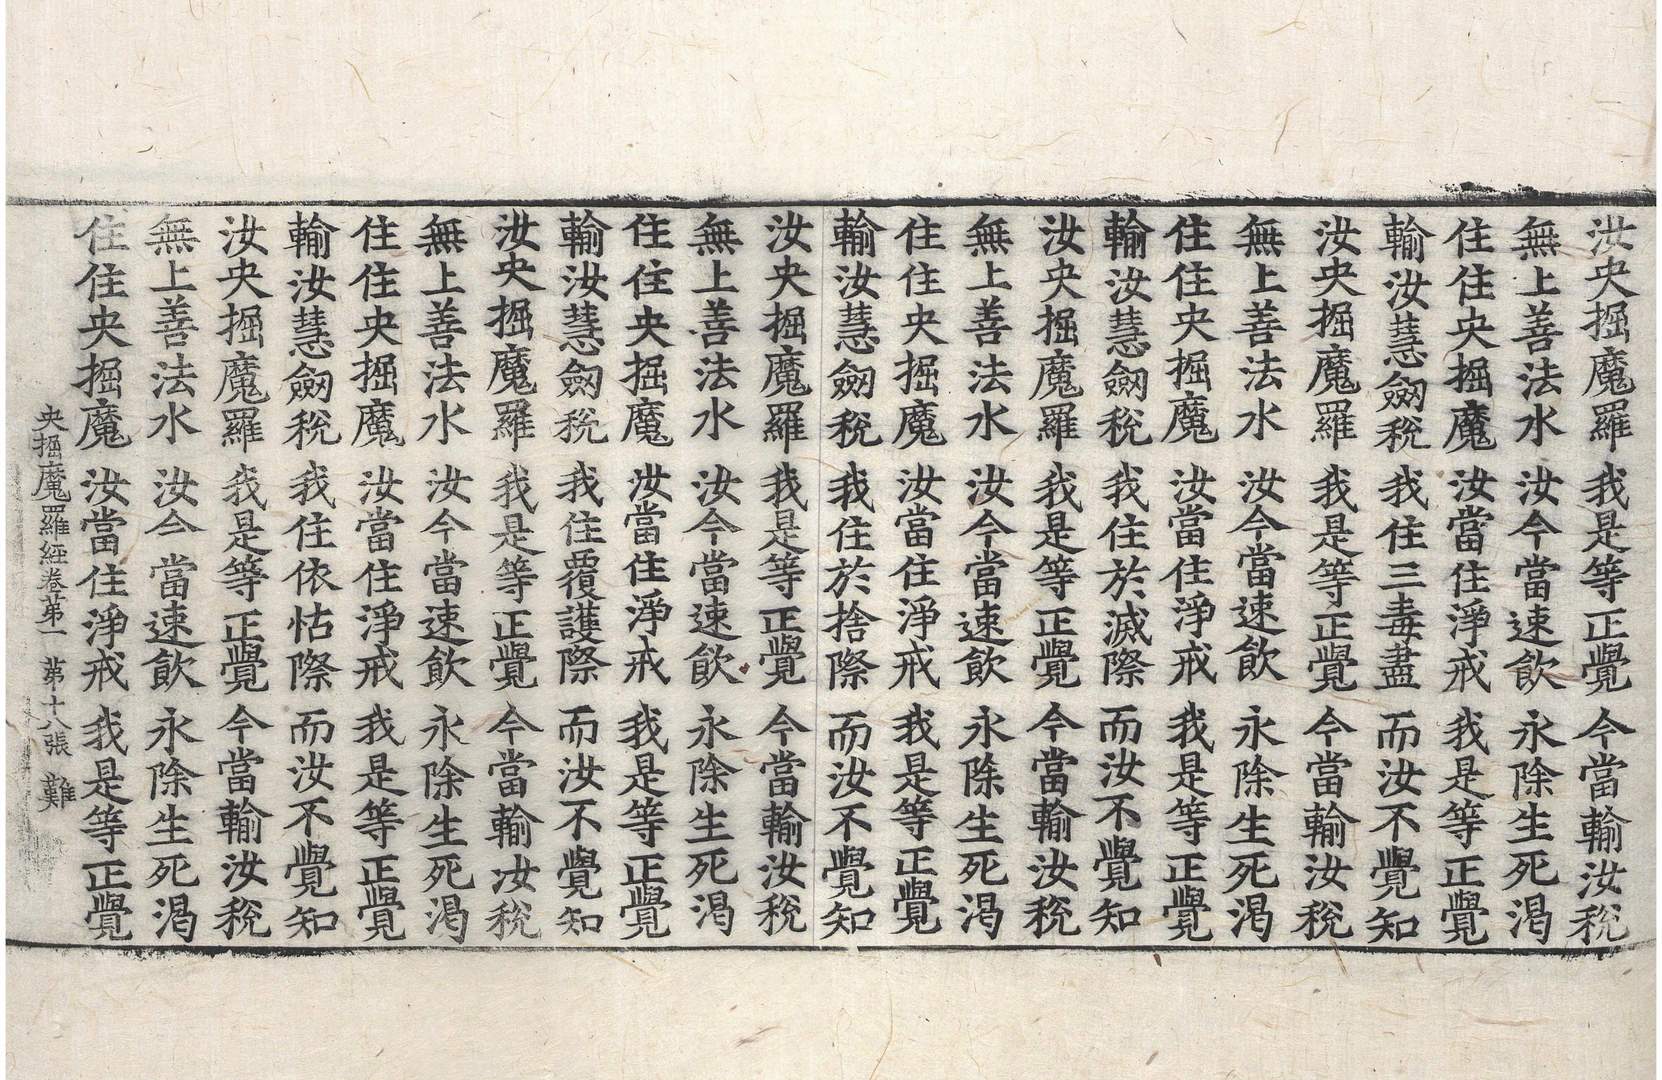 汝央掘魔羅 我是等正覺 今當輸汝稅
無上善法水 汝今當速飲 永除生死渴
住住央掘魔 汝當住淨戒 我是等正覺
輸汝慧劒稅 我住三毒盡 而汝不覺知
汝央掘魔羅 我是等正覺 今當輸汝稅
無上善法水 汝今當速飲 永除生死渴
住住央掘魔 汝當住淨戒 我是等正覺
輸汝慧劒稅 我住於滅際 而汝不覺知
汝央掘魔羅 我是等正覺 今當輸汝稅
無上善法水 汝今當速飲 永除生死渴
住住央掘魔 汝當住淨戒 我是等正覺
輸汝慧劒稅 我住於捨際 而汝不覺知
汝央掘魔羅 我是等正覺 今當輸汝稅
無上善法水 汝今當速飲 永除生死渴
住住央掘魔 汝當住淨戒 我是等正覺
輸汝慧劒稅 我住覆護際 而汝不覺知
汝央掘魔羅 我是等正覺 今當輸汝稅
無上善法水 汝今當速飲 永除生死渴
住住央掘魔 汝當住淨戒 我是等正覺
輸汝慧劒稅 我住依怙際 而汝不覺知
汝央掘魔羅 我是等正覺 今當輸汝稅
無上善法水 汝今當速飲 永除生死渴
住住央掘魔 汝當住淨戒 我是等正覺
央掘魔羅経卷第一 第十八張 難